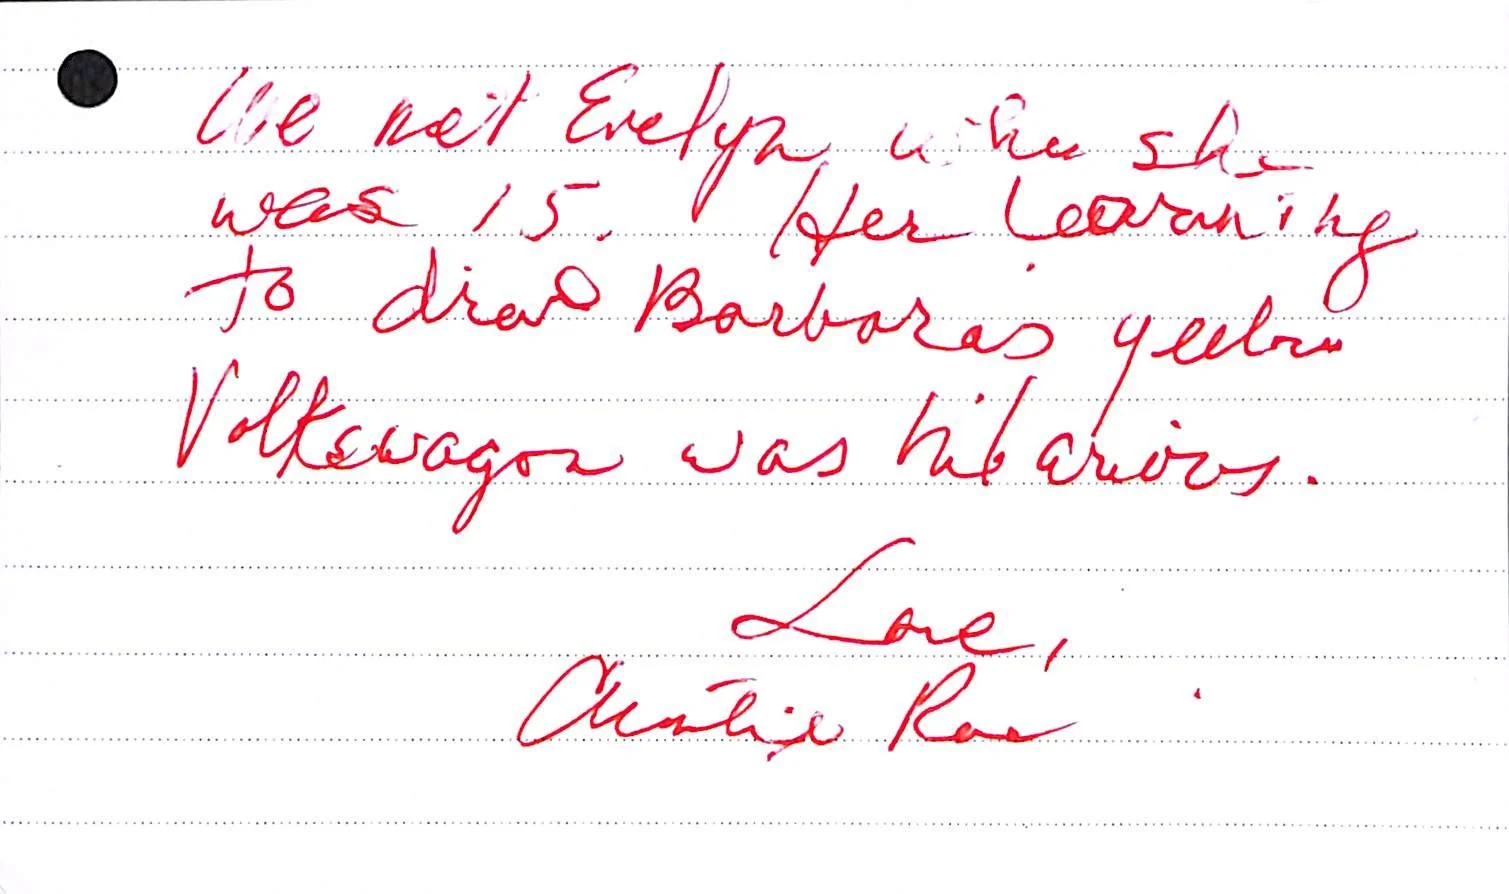 We met Evelyn when she
was 15. Her learning
to drive Barbaras yellow
Volkswagon was hilarious.
Love,
Christie Rae